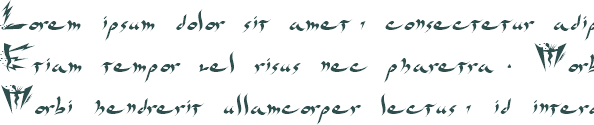 Lorem ipsum dolor sit amet, consectetur adip
Etiam tempor vel risus nec pharetra. Morb
Morbi hendrerit ullamcorper lectus, id interd